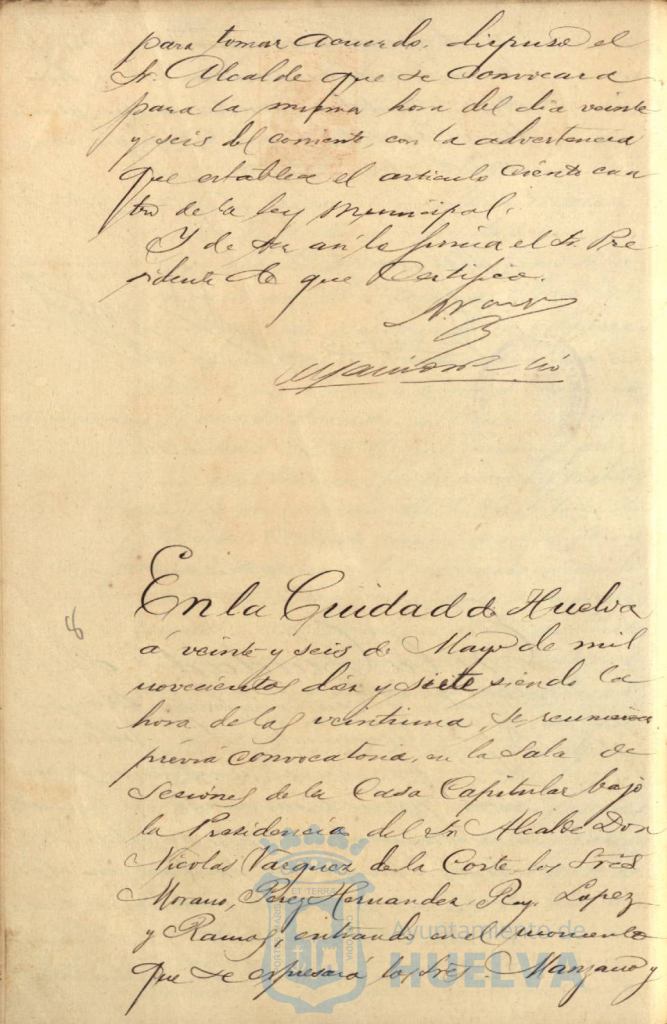 para tomar acuerdo, dispuso el
Sr. Alcalde que se convocara
para la misma hora del dia veinte
y seis del corriente, con la advertencia
que establece el articulo Ciento cua
tro de la ley Municipal.
Y de ser asi lo firma el Sr. Pre
sidente de que Certifico.
8
En la Cuidad de Huelva
á veinte y seis de Mayo de mil
novecientos diez y siete siendo la
hora de las veintiuna, se reunieron
prévia convocatoria, en la Sala de
Sesiones de la Casa Capitular bajo
la Presidencia del Sr. Alcalde Don
Nicolas Vazquez de la Corte, los Sres
Morano, Perez Hernandez, Rey, Lopez
y Ramos, entrando en el momento
que se espresará los Sres. Manzano y
Ayuntamiento de
HUELVA